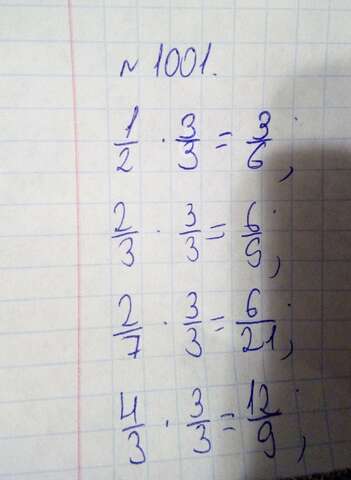 № 1001.
1/2 · 3/3 = 3/6;
2/3 · 3/3 = 6/9;
2/7 · 3/3 = 6/21;
4/3 · 3/3 = 12/9;